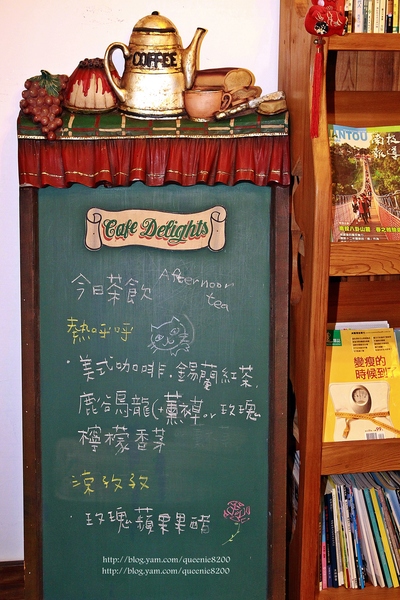 COFFEE
Cafe Delights
今日茶飲
Afternoon tea
熱呼呼
·美式咖啡.錫蘭紅茶.
鹿谷烏龍(+薰衣草or玫瑰
檸檬香茅
涼孜孜
·玫瑰蘋果果醋
http://blog.yam.com/queenie8200
http://blog.yam.com/queenie8200
NANTOU
變瘦的
時候到